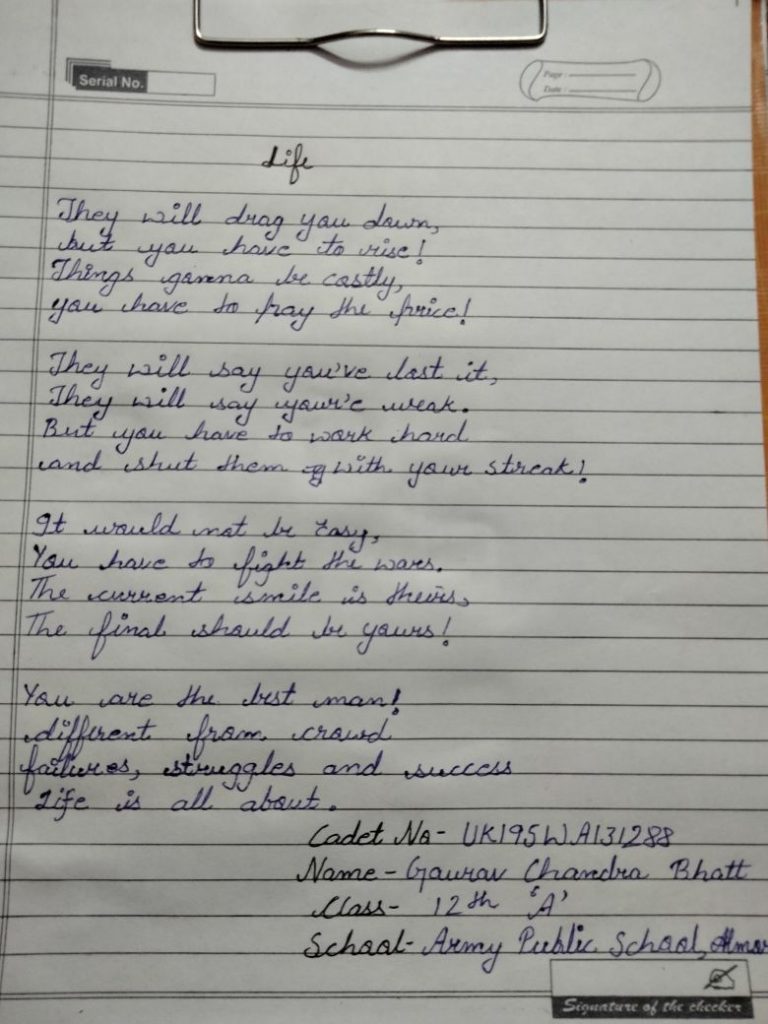 Serial No.
Page :
Date :
Life
They will drag you down,
but you have to rise!
Things gonna be costly,
you have to pay the price!
They will say you've lost it,
They will say your'e weak.
But you have to work hard
and shut them with your streak!
It would not be Easy,
You have to fight the wars.
The current smile is theirs,
The final should be yours!
You are the best man!
different from crowd
failures, struggles and success
Life is all about.
Cadet No- UK195WA131288
Name - Gaurav Chandra Bhatt
Class- 12th 'A'
School- Army Public School,
Signature of the checker